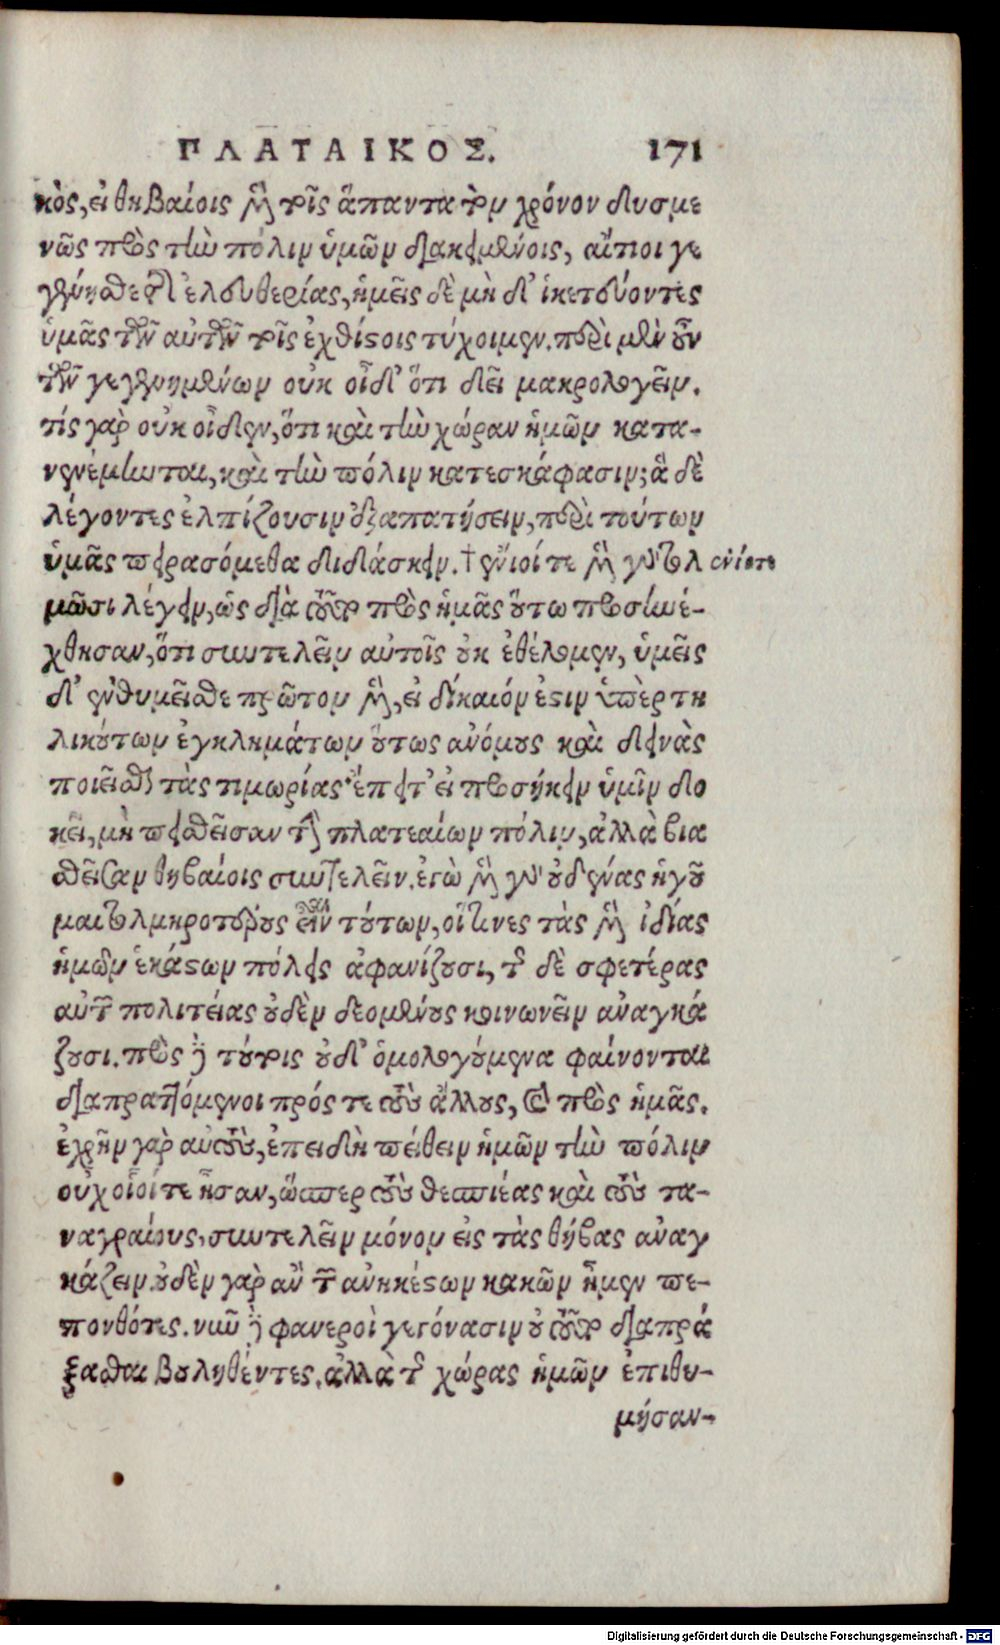 ΠΛΑΤΑΙΚΟΣ. 171
κὸς, εἰ θηβαίοις μὲν τοῖς ἅπαντα τὸν χρόνον δυσμε
νῶς πρὸς τὴν πόλιν ὑμῶν διακειμένοις, αἴτιοι γε
γένησθε τῆς ἐλευθερίας, ἡμεῖς δὲ μὴ δ' ἱκετεύοντες
ὑμᾶς τῶν αὐτῶν τοῖς ἐχθίστοις τύχοιμεν. περὶ μὲν οὖν
τῶν γεγενημένων οὐκ οἶδ' ὅτι δεῖ μακρολογεῖν.
τίς γὰρ οὐκ οἶδεν, ὅτι καὶ τὴν χώραν ἡμῶν κατα-
νενέμηνται, καὶ τὴν πόλιν κατεσκάφασιν; ἃ δὲ
λέγοντες ἐλπίζουσιν ἐξαπατήσειν, περὶ τούτων
ὑμᾶς πειρασόμεθα διδάσκειν. † ἔνιοί τε μὲν γὰρ τολ ἐνίοτε
μῶσι λέγειν, ὡς διὰ τοῦτο πρὸς ἡμᾶς οὕτω προσηνέ-
χθησαν, ὅτι συντελεῖν αὐτοῖς οὐκ ἐθέλομεν, ὑμεῖς
δ' ἐνθυμεῖσθε πρῶτον μὲν, εἰ δίκαιόν ἐστιν ὑπὲρ τη
λικούτων ἐγκλημάτων οὕτως ἀνόμους καὶ δεινὰς
ποιεῖσθαι τὰς τιμωρίας· ἔπειτ' εἰ προσήκειν ὑμῖν δο
κεῖ, μὴ πεισθεῖσαν τὴν πλατεαίων πόλιν, ἀλλὰ βια
σθεῖσαν θηβαίοις συντελεῖν. ἐγὼ μὲν γὰρ οὐδένας ἡγοῦ
μαι τολμηροτέρους εἶναι τούτων, οἵτινες τὰς μὲν ἰδίας
ἡμῶν ἑκάστων πόλεις ἀφανίζουσι, τῆς δὲ σφετέρας
αὐτῶν πολιτείας οὐδὲν δεομένους κοινωνεῖν ἀναγκά
ζουσι. πρὸς δὲ τούτοις οὐδ' ὁμολογούμενα φαίνονται
διαπραττόμενοι πρός τε τοὺς ἄλλους, καὶ πρὸς ἡμᾶς.
ἐχρῆν γὰρ αὐτοὺς, ἐπειδὴ πείθειν ἡμῶν τὴν πόλιν
οὐχ οἷοί τε ἦσαν, ὥσπερ τοὺς θεσπιέας καὶ τοὺς τα-
ναγραίους, συντελεῖν μόνον εἰς τὰς θήβας ἀναγ
κάζειν. οὐδὲν γὰρ ἂν τῶν ἀνηκέστων κακῶν ἦμεν πε-
πονθότες. νῦν δὲ φανεροὶ γεγόνασιν οὐ τοῦτο διαπρά
ξασθαι βουληθέντες, ἀλλὰ τῆς χώρας ἡμῶν ἐπιθυ-
μήσαν-
Digitalisierung gefördert durch die Deutsche Forschungsgemeinschaft - DFG